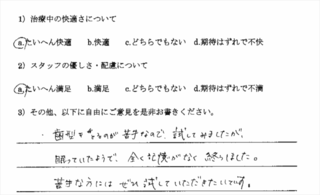 1）治療中の快適さについて
a.たいへん快適　b.快適　c.どちらでもない　d.期待はずれで不快
2）スタッフの優しさ・配慮について
a.たいへん満足　b.満足　c.どちらでもない　d.期待はずれで不満
3）その他、以下に自由にご意見を是非お書きください。
・歯型をとるのが苦手なので、試してみましたが、
眠っていたようで、全く記憶がなく終りました。
苦手な方には ぜひ試していただきたいです。